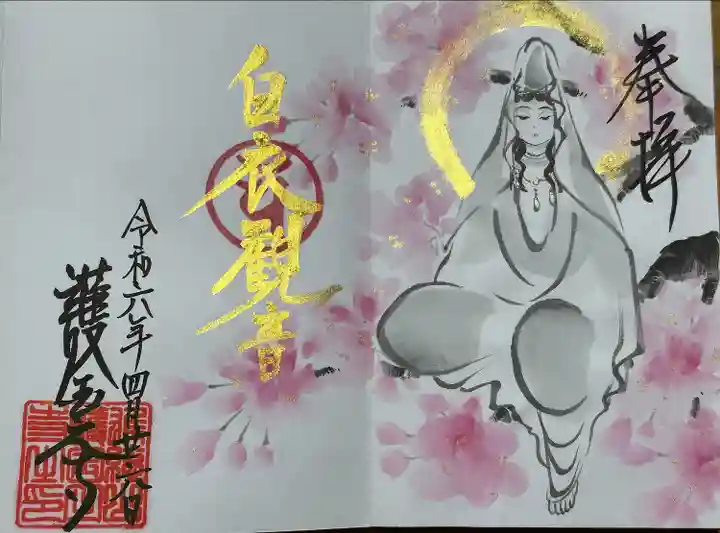 奉拝
白衣観音
令和六年四月廿六日
護国寺